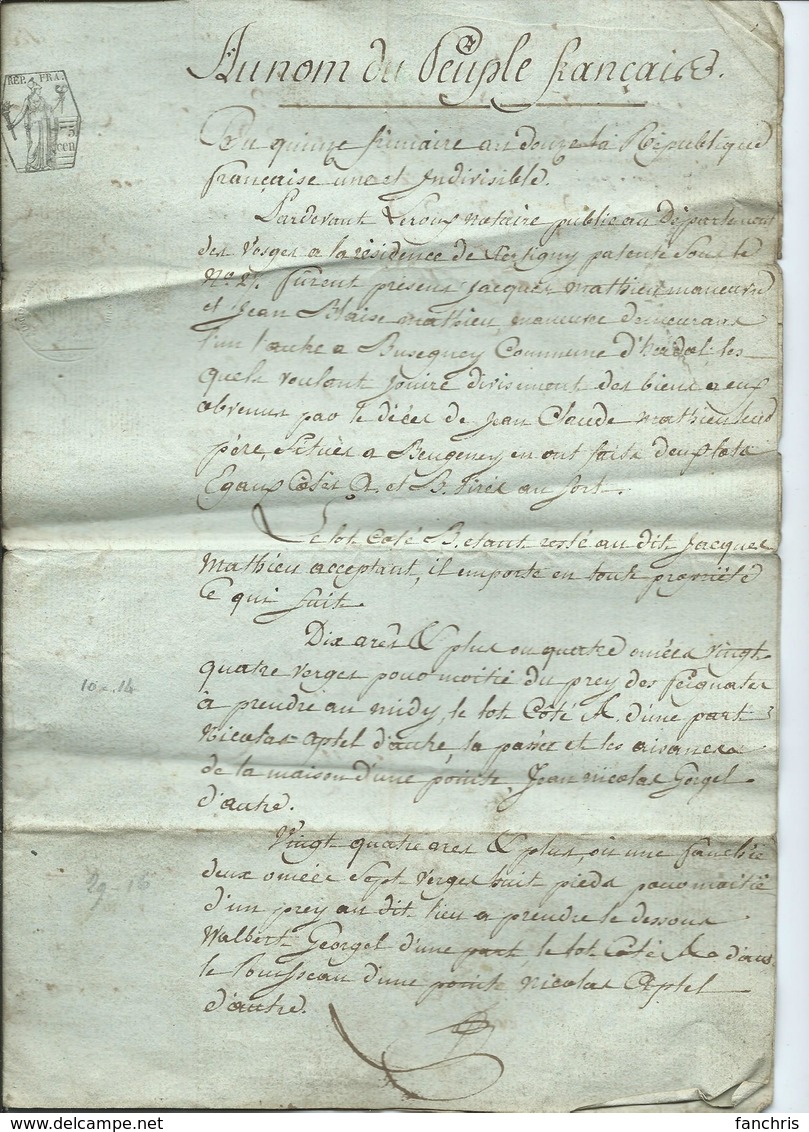 Au nom du Peuple français.
REP. FRA.
75
cen
Du quinze frimaire an douze la République
française une et Indivisible.
Pardevant Leroux notaire public au Département
des Vosges a la résidence de Xertigny patenté sous le
N.o 27. furent présens Jacques Mathieu manœuvre
et Jean Blaise Mathieu, manœuvre demeurans
l'un l'autre a Buzegney Commune d'herdal. les
quels voulant jouire divisiment des biens a eux
obvenus par le décès de Jean Claude Mathieu leur
père, situés a Beuzeney en ont faits deux lots
Egaux Cotés A. et B. tirés au sort.
Le lot Coté B. etant resté au dit Jacques
Mathieu acceptant, il emporte en toute propriété
Ce qui suit.
Dix ares & plus ou quatre omées vingt
quatre verges pour moitié du prey des
10 - 14
à prendre au midy, le lot Coté A. d'une part
Nicolas Aptel d'autre la passée et les aisances
de la maison d'une pointe, Jean Nicolas Gorgel
d'autre.
Vingt quatre ares & plus, ou une fauchée
29 - 16
deux omées Sept verges huit pieds pour moitié
d'un prey au dit lieu a prendre le dessous
Walbert Georgel d'une part, le lot Coté A. d'au
le Rousseau d'une pointe Nicolas Aptel
d'autre.
delcampe.net
fanchris